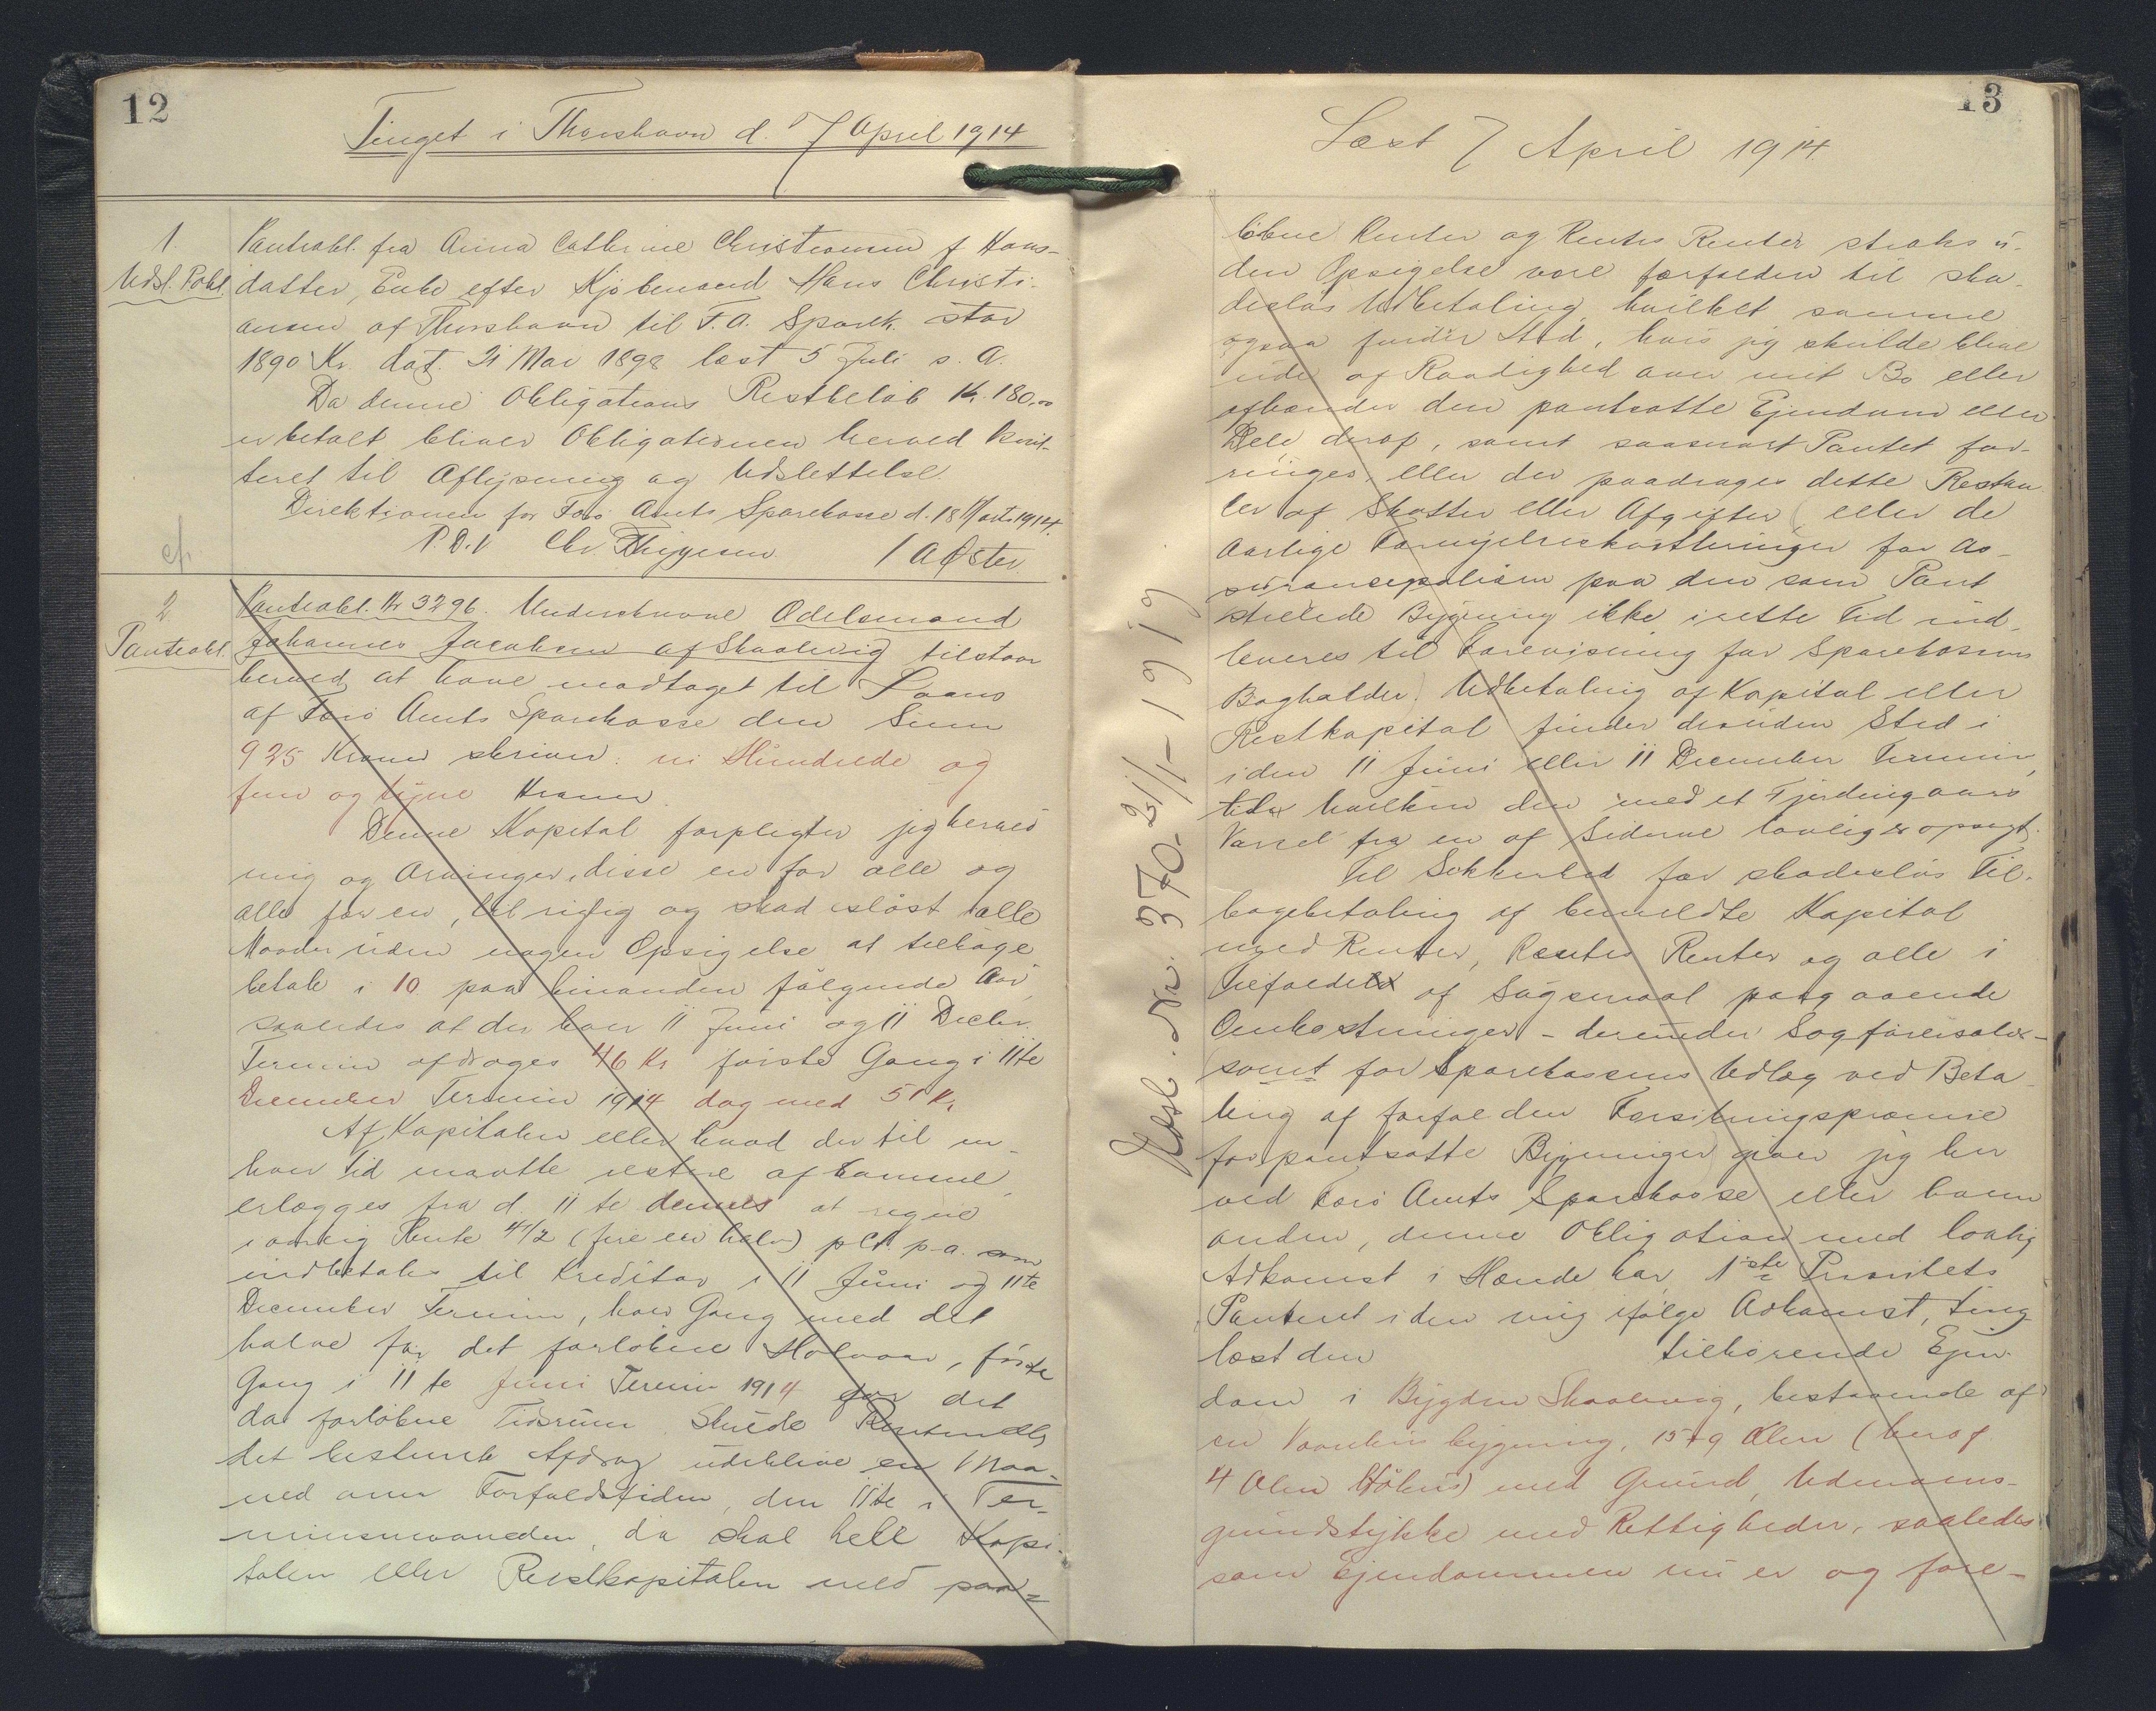 12
Tinget i Thorshavn d. 7 April 1914
1.
Udsl. Pobl.
Panteobl. fra Anna Cathrine Christiansen f Hans-
datter, Enke efter Kjøbmand Hans Christi-
ansen af Thorshavn til F. A. Spark. stor
1890 Kr. dat. 21 Mai 1898 læst 5 Juli s. A.
Da denne Obligations Restbeløb Kr. 180,00
er betalt bliver Obligationen herved kvit-
teret til Aflysning og Udslettelse.
Direktionen for Færø Amts Sparekasse d. 18 Marts 1914.
P. D. V Chr. Thygesen / A Øster
cfr.
2.
Panteobl.
Panteobl. Nr 3296. Underskrevne Odelsmand
Johannes Jacobsen af Skaalevig tilstaar
herved at have modtaget til Laans
af Færø Amts Sparekasse den Sum
925 Kroner skriver: ni Hundrede og
fem og tyve Kroner.
Denne Kapital forpligter jeg herved
mig og Arvinger, disse en for alle og
alle for en, til rigtig og skadesløst i alle
Maader uden nogen Opsigelse at tilbage
betale i 10 paa hinanden følgende Aar,
saaledes at der hver 11 Juni og 11 Decbr.
Termin afdrages 46 Kr første Gang i 11te
December Termin 1914 dog med 51 Kr.
Af Kapitalen eller hvad der til en-
hver Tid maatte restere af samme,
erlægges fra d. 11te dennes at regne
i aarlig Rente 4 1/2 (fire en halv) pCt p. a. som
indbetales til Kreditor i 11 Juni og 11te
December Termin, hver Gang med det
halve for det forløbne Halvaar, første
Gang i 11te Juni Termin 1914 for det
da forløbne Tidsrum. Skulde Renten ell.
det bestemte Afdrag udeblive en Maa-
ned over Forfaldstiden, den 11te i Ter-
minsmaaneden, da skal hele Kapi-
talen eller Restkapitalen med paa-
13
Læst 7 April 1914
løbne Renter og Rentes Renter straks u-
den Opsigelse være forfalden til ska-
desløs Udbetaling, hvilket samme
ogsaa finder Sted, hvis jeg skulde blive
ude af Raadighed over mit Bo eller
afhænder den pantsatte Ejendom eller
Dele deraf, samt saasnart Pantet for-
ringes, eller der paadrages dette Restan-
cer af Skatter eller Afgifter (eller de
aarlige Fornyelseskvitteringer for As-
surancepolicen paa den som Pant
stillede Bygning ikke i rette Tid ind-
leveres til Forevisning for Sparekassens
Bogholder). Udbetaling af Kapital eller
Restkapital finder desuden Sted i
i den 11 Juni eller 11 December Termin,
til hvilken den med et Fjerdingaars
Varsel fra en af Siderne lovlig er opsagt.
Til Sikkerhed for skadesløs Til-
bagebetaling af bemeldte Kapital
med Renter, Rentes Renter og alle i
Tilfælde af Søgsmaal paagaaende
Omkostninger - derunder Sagførersalær -
samt for Sparekassens Udlæg ved Beta-
ling af forfalden Forsikringspræmie
for pantsatte Bygninger giver jeg her
ved Færø Amts Sparekasse eller hvem
anden, denne Obligation med lovlig
Adkomst i Hænde har, 1ste Prioritets
Panteret i den mig ifølge Adkomst, ting
læst den tilhørende Ejen-
dom i Bygden Skaalevig, bestaaende af
en Vaaningsbygning, 15 x 9 Alen (heraf
4 Alen) med Grund, Udmarks-
grundstykke med Rettigheder, saaledes
som Ejendommen nu er og fore-
Udsl. Nr. 370. 21/1- 1919